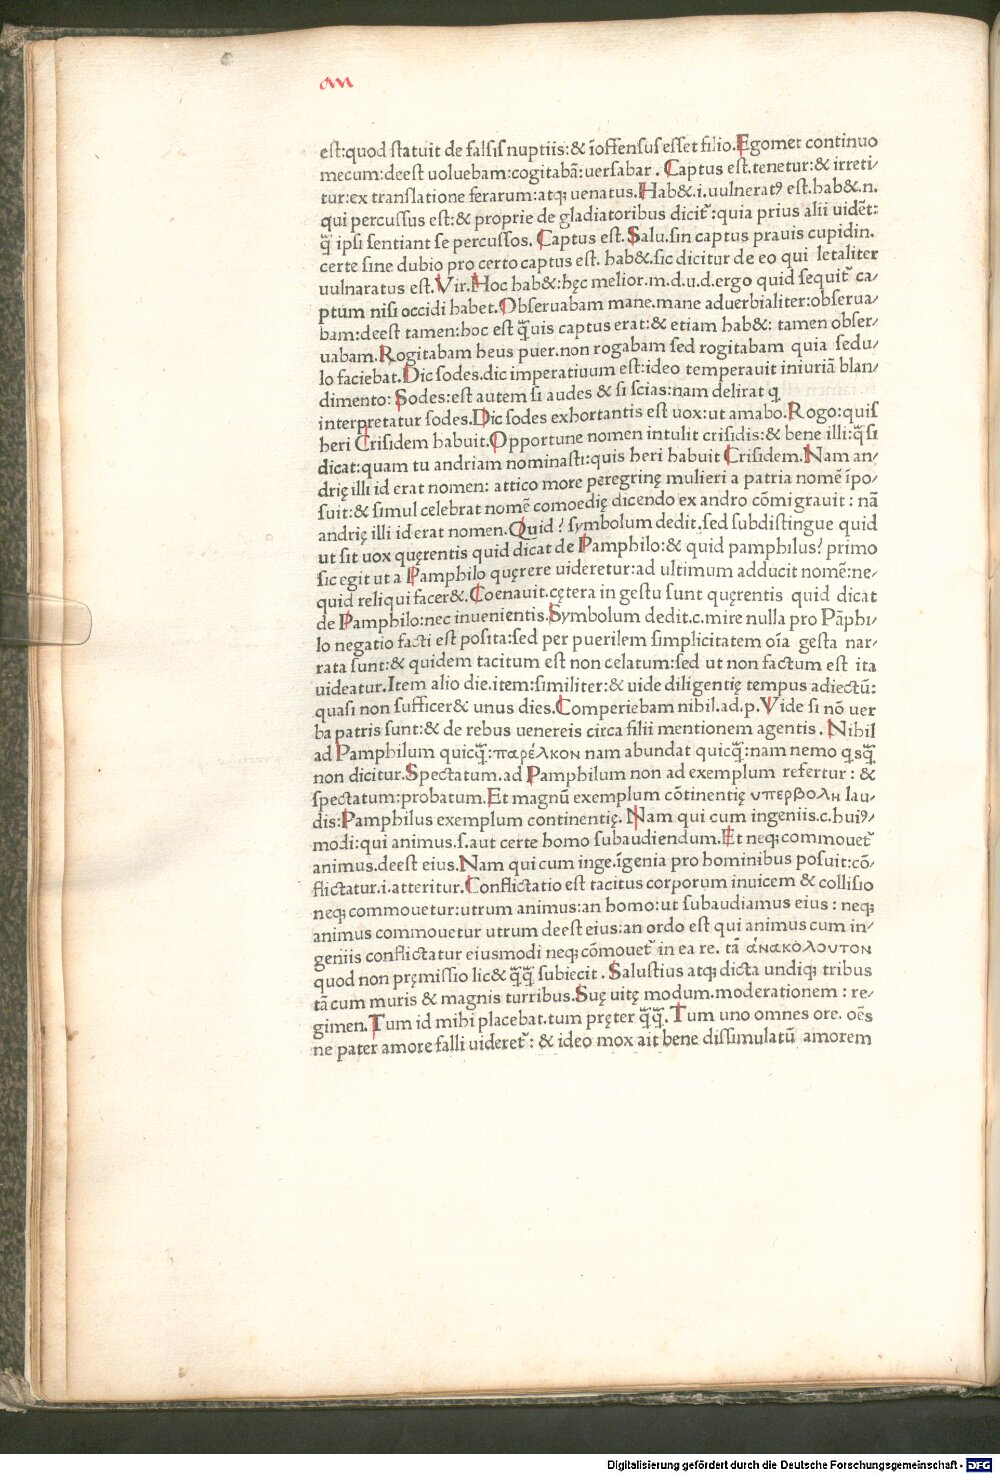 est:quod statuit de falsis nuptiis:& ĩoffensus esset filio.Egomet continuo
mecum:deest uoluebam:cogitabã:uersabar. Captus est.tenetur:& irreti⸗
tur:ex translatione ferarum:atq; uenatus.Hab&.i.uulneratꝰ est.hab&.n.
qui percussus est:& proprie de gladiatoribus dicit᷑:quia prius alii uidẽt:
q̃ ipsi sentiant se percussos. Captus est.Salu.sin captus prauis cupidin.
certe sine dubio pro certo captus est. hab&.sic dicitur de eo qui letaliter
uulnaratus est.Vir.Hoc hab&:hęc melior.m.d.u.d.ergo quid sequit᷑ ca⸗
ptum nisi occidi habet.Obseruabam mane.mane aduerbialiter:obserua⸗
bam:deest tamen:hoc est q̃uis captus erat:& etiam hab&: tamen obser⸗
uabam.Rogitabam heus puer.non rogabam sed rogitabam quia sedu⸗
lo faciebat.Dic sodes.dic imperatiuum est:ideo temperauit iniuriã blan⸗
dimento: Sodes:est autem si audes & si scias:nam delirat ꝗ
interpretatur sodes.Dic sodes exhortantis est uox:ut amabo.Rogo:quis
heri Crisidem habuit.Opportune nomen intulit crisidis:& bene illi:q̃si
dicat:quam tu andriam nominasti:quis heri habuit Crisidem.Nam an⸗
drię illi id erat nomen: attico more peregrinę mulieri a patria nomẽ ĩpo⸗
suit:& simul celebrat nomẽ comoedię dicendo ex andro cõmigrauit: nã
andrię illi id erat nomen.Quid? symbolum dedit.sed subdistingue quid
ut sit uox quęrentis quid dicat de Pamphilo:& quid pamphilus? primo
sic egit ut a Pamphilo quęrere uideretur:ad ultimum adducit nomẽ:ne⸗
quid reliqui facer&.Coenauit.cętera in gestu sunt quęrentis quid dicat
de Pamphilo:nec inuenientis.Symbolum dedit.c.mire nulla pro Pãphi⸗
lo negatio facti est posita:sed per puerilem simplicitatem oĩa gesta nar⸗
rata sunt:& quidem tacitum est non celatum:sed ut non factum est ita
uideatur.Item alio die.item:similiter:& uide diligentię tempus adiectũ:
quasi non suffice r& unus dies.Comperiebam nihil.ad.p.Vide si nõ uer
ba patris sunt:& de rebus uenereis circa filii mentionem agentis. Nihil
ad Pamphilum quicq̃:παρέλκον nam abundat quicq̃:nam nemo ꝗsq̃
non dicitur.Spectatum.ad Pamphilum non ad exemplum refertur: &
spectatum:probatum.Et magnũ exemplum cõtinentię υπερβολη lau⸗
dis:Pamphilus exemplum continentię. Nam qui cum ingeniis.c.huiꝰ⸗
modi:qui animus.s.aut certe homo subaudiendum.Et neq; commouet᷑
animus.deest eius.Nam qui cum inge.ĩgenia pro hominibus posuit:cõ⸗
flictatur.i.atteritur.Conflictatio est tacitus corporum inuicem & collisio
neq; commouetur:utrum animus:an homo:ut subaudiamus eius: neq;
animus commouetur utrum deest eius:an ordo est qui animus cum in⸗
geniis conflictatur eiusmodi neq; cõmouet᷑ in ea re. tã ἀνακόλουτον
quod non pręmissio lic& q̃q̃ subiecit. Salustius atq; dicta undiq; tribus
tã cum muris & magnis turribus.Suę uitę modum.moderationem: re⸗
gimen.Tum id mihi placebat.tum pręter q̃q̃.Tum uno omnes ore. oẽs
ne pater amore falli uideret᷑: & ideo mox ait bene dissimulatũ amorem
Digitalisierung gefördert durch die Deutsche Forschungsgemeinschaft - DFG